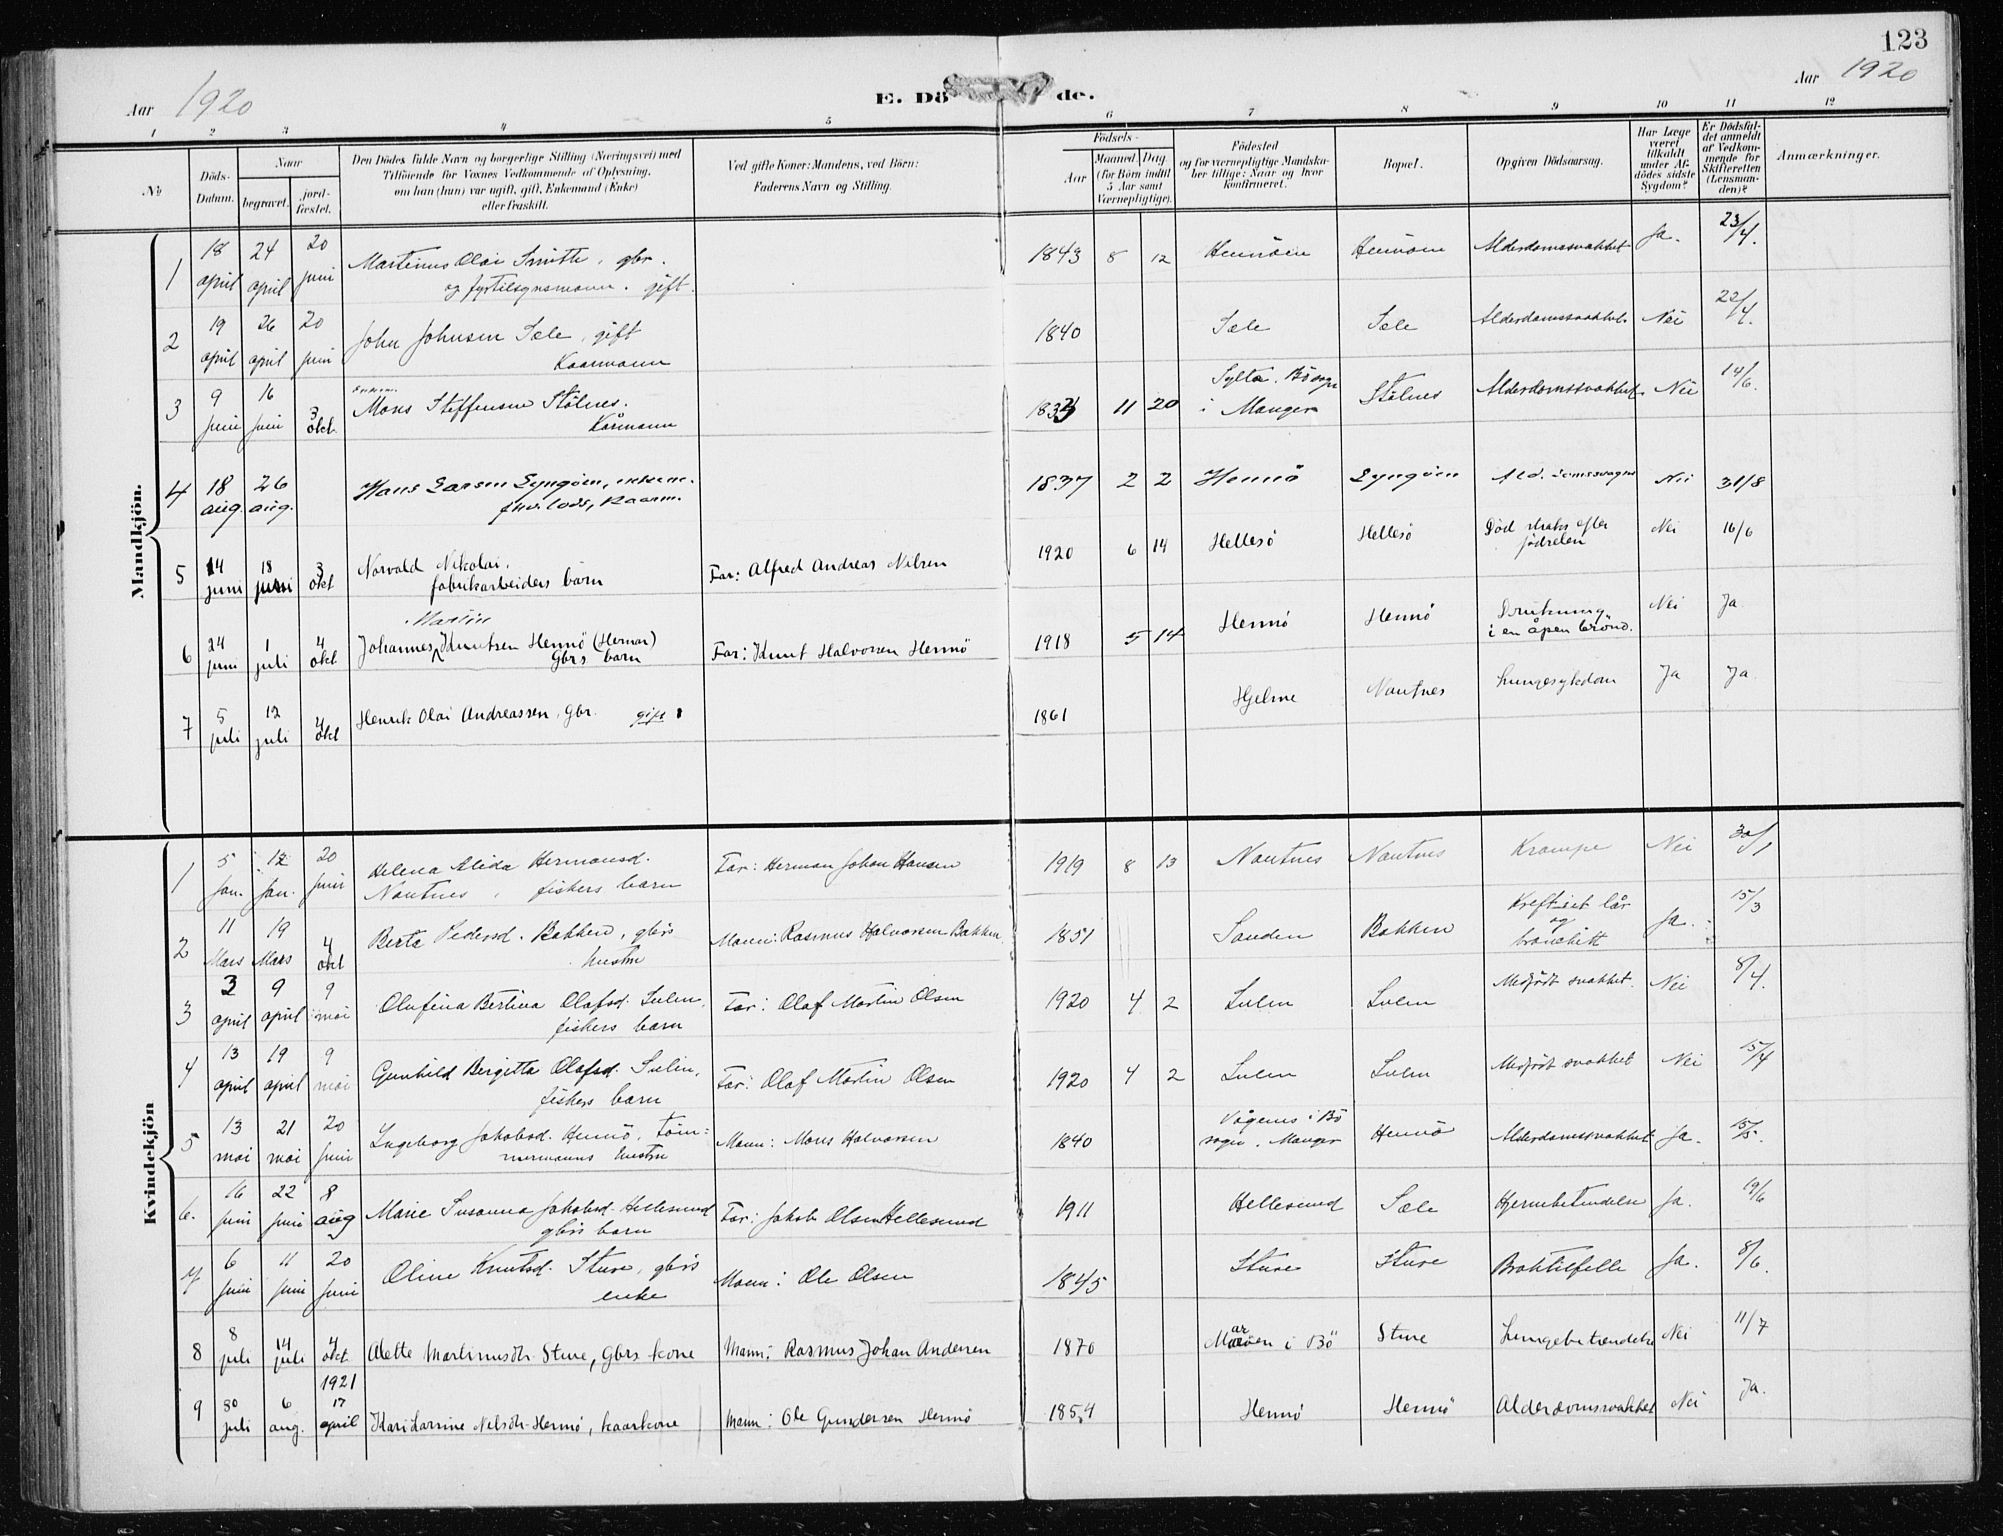 123
Aar 1920
E. Dö de.
Aar 1920
1 2 3 4 5 6 7 8 9 10 11 12
No
Döds-Datum.
Naar
begravet.
jord-fæstet.
Den Dödes fulde Navn og borgerlige Stilling (Næringsvei) med
Tilföiende for Voxnes Vedkommende af Oplysning,
om han (hun) var ugift, gift, Enkemand (Enke)
eller fraskilt.
Ved gifte Koner: Mandens, ved Börn:
Faderens Navn og Stilling.
Födsels-
Aar
Maaned. (for Börn indtil 5 Aar samt Værnepligtige).
Dag
Födested
og for værnepligtige Mandska-
ber tillige: Naar og hvor
konfirmeret.
Bopæl.
Opgiven Dödsaarsag.
Har Læge været tilkaldt under Af-dödes sidste Sygdom?
Er Dödsfal-det anmeldt af Vedkom-mende for Skifteretten (Lensman-den)?
Anmærkninger.
Mandkjön.
1 18 april 24 april 20 juni Martinus Olai Smith, gbr. og fyrtilsynsmann. gift. 1843 8 12 Hennöen Hennöen Alderdomssvakhet Ja. 23/4.
2 19 april 26 april 20 juni John Johnsen Sæle, gift Kaarmann 1840 Sæle Sæle Alderdomssvakhet Nei 22/4.
3 9 juni 16 juni 3 okt. Mons Steffensen Stölnes. Kårmann 1833 11 20 Sylta, Bö sogn i Manger Stölnes Alderdomssvakhet Nei 14/6.
4 18 aug. 26 aug. Hans Larsen Lyngöen, enkem. fhv. lods, kaarm. 1837 2 2 Hennö Lyngöen Nei 31/8
5 14 juni 18 juni 3 okt Norvald Nikolai, fabrikarbeiders barn Far: Alfred Andreas Nilsen 1920 6 14 Hellesö Hellesö Död straks efter födselen Nei 16/6
6 24 juni 1 juli 4 okt Johannes Martin Knutsen Hennö (Hernar) Gbrs barn Far: Knut Halvorsen Hennö 1918 5 14 Hennö Hennö Drukning i en åpen brönd. Nei Ja
7 5 juli 12 juli 4 okt Henrik Olai Andreassen, Gbr. gift 1861 Hjelme Nautnes Lungesykdom Ja Ja
Kvindekjön
1 5 Jan. 12 Jan. 20 juni Helena Alida Hermansd. Nautnes, fiskers barn Far: Herman Johan Hansen 1919 8 13 Nautnes Nautnes Krampe Nei 30/1
2 11 Mars 19 Mars 4 okt Berta Pedersd. Bakken, gbrs hustru Mann: Rasmus Halvorsen Bakken 1851 Sanden Bakken Kreft i et lår og bronchitt Ja. 15/3
3 3 april 9 april 9 mai Olufina Bertina Olafsd. Sulen, fiskers barn Far: Olaf Martin Olsen 1920 4 2 Sulen Sulen Medfödt svakhet. Nei 8/4.
4 13 april 19 april 9 mai Gunhild Birgitta Olafsd. Sulen, fiskers barn Far: Olaf Martin Olsen 1920 4 2 Sulen Sulen Medfödt svakhet Nei 15/4
5 13 mai 21 mai 20 juni Ingeborg Jakobsd. Hennö, töm-mermanns hustru Mann: Mons Halvorsen 1840 Vågenes i Bö sogn, Manger Hennö Alderdomssvakhet Ja. 15/5.
6. 16 juni 22 juni 8 aug Marie Susanna Jakobsd. Hellesund gbrs barn Far: Jakob Olsen Hellesund 1911 Hellesund Sæle Hjernebetændelse Ja. 19/6
7 6 juni 11 juni 20 juni Oline Knutsd. Sture, gbrs enke Mann: Ole Olsen 1845 Sture Sture Ja. 8/6.
8 8 juli 14 juli 4 okt. Alette Martinusdtr. Sture, gbrs kone Mann: Rasmus Johan Andersen 1870 Maröen i Bö Sture Lungebetændelse Nei 11/7
9 30 juli 6 aug. 1921 17 april Kari Larsine Nilsdtr. Hennö, kaarkone Mann: Ole Gundersen Hennö 1854 Hennö Hennö Alderdomssvakhet Nei Ja.